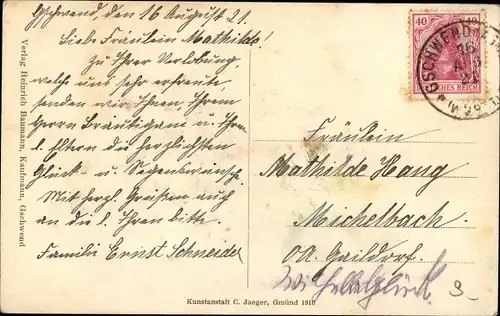 Gschwend, den 16 August 21.
Liebe Fräulein Mathilde!
Zu Ihrer Verlobung,
welche uns sehr erfreute
senden wir Ihnen, Ihrem
Herrn Bräutigam u. Ihren
l. Eltern die herzlichsten
Glück- u. Segenswünsche.
Mit herzl. Grüßen auch
an die l. Ihren bitte
Familie Ernst Schneider
Verlag Heinrich Baumann, Kaufmann, Gschwend
40 40
DEUTSCHES REICH
GSCHWEND
16
AUG
21
Fräulein
Mathilde Haug
Michelbach
OA. Gaildorf.
Kunstanstalt C. Jaeger, Gmünd 1910